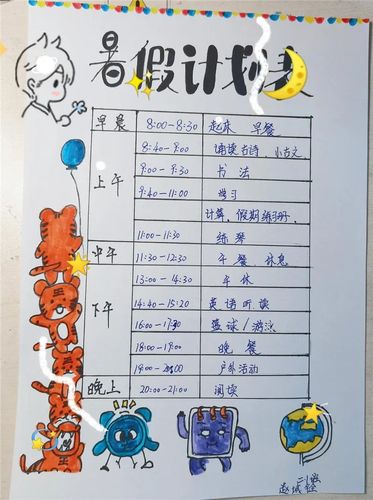 暑假计划表
早晨 8:00-8:30 起床 早餐
上午 8:40-9:00 诵读古诗、小古文
9:00-9:30 书法
9:40-11:00 学习
计算、假期练习册、
11:00-11:30 练琴
中午 11:30-12:30 午餐 休息
13:00-14:30 午休
下午 14:40-15:20 英语听读
16:00-17:30 篮球/游泳
18:00-19:00 晚餐
19:00-20:00 户外活动
晚上 20:00-21:00 阅读